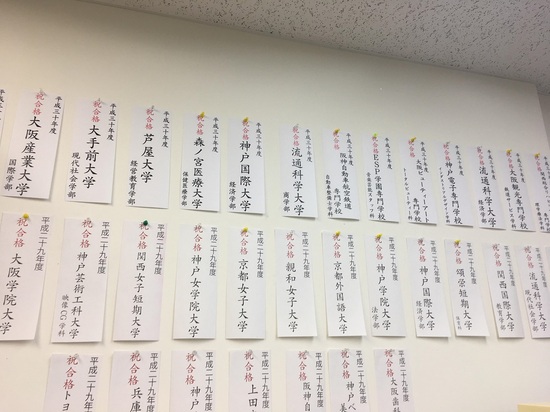 祝合格 大阪産業大学
国際学部
平成三十年度
祝合格 大手前大学
現代社会学部
平成三十年度
祝合格 芦屋大学
経営教育学部
平成三十年度
祝合格 森ノ宮医療大学
保健医療学部
平成三十年度
祝合格 神戸国際大学
経済学部
平成三十年度
祝合格 流通科学大学
商学部
平成三十年度
祝合格 阪神自動車航空鉄道
専門学校
平成三十年度
祝合格 ESP学園専門学校
平成三十年度
祝合格
専門学校
平成三十年度
祝合格 神戸電子専門学校
平成三十年度
祝合格 流通科学大学
経済学部
平成三十年度
祝合格 大阪観光専門学校
平成三十年度
祝合格
専門学校
祝合格 大阪学院大学
平成二十九年度
祝合格 神戸芸術工科大学
映像CG学科
平成二十九年度
祝合格 関西女子短期大学
平成二十九年度
祝合格 神戸女学院大学
平成二十九年度
祝合格 京都女子大学
平成二十九年度
祝合格 親和女子大学
平成二十九年度
祝合格 京都外国語大学
平成二十九年度
祝合格 神戸学院大学
法学部
平成二十九年度
祝合格 神戸国際大学
経済学部
平成二十九年度
祝合格 頌栄短期大学
平成二十九年度
祝合格 関西国際大学
教育学部
平成二十九年度
祝合格 流通科学大学
平成二十九年度
祝合格 トヨ
平成二十九年度
祝合格 兵庫
平成二十九年度
祝合格 神戸
平成二十九年度
祝合格 上田
平成二十九年度
祝合格 阪神自
平成二十九年度
祝合格 神戸ベ
平成二十九年度
祝合格 大阪歯科